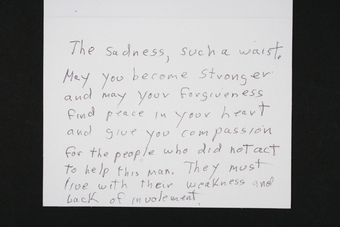 The sadness, such a waist.
May you become stronger
and may your forgiveness
find peace in your heart
and give you compassion
for the people who did not act
to help this man. They must
live with their weakness and
back of involement.